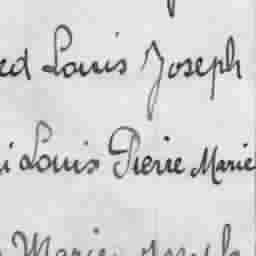 ed Louis Joseph
i Louis Pierre Marie
Marie Joseph